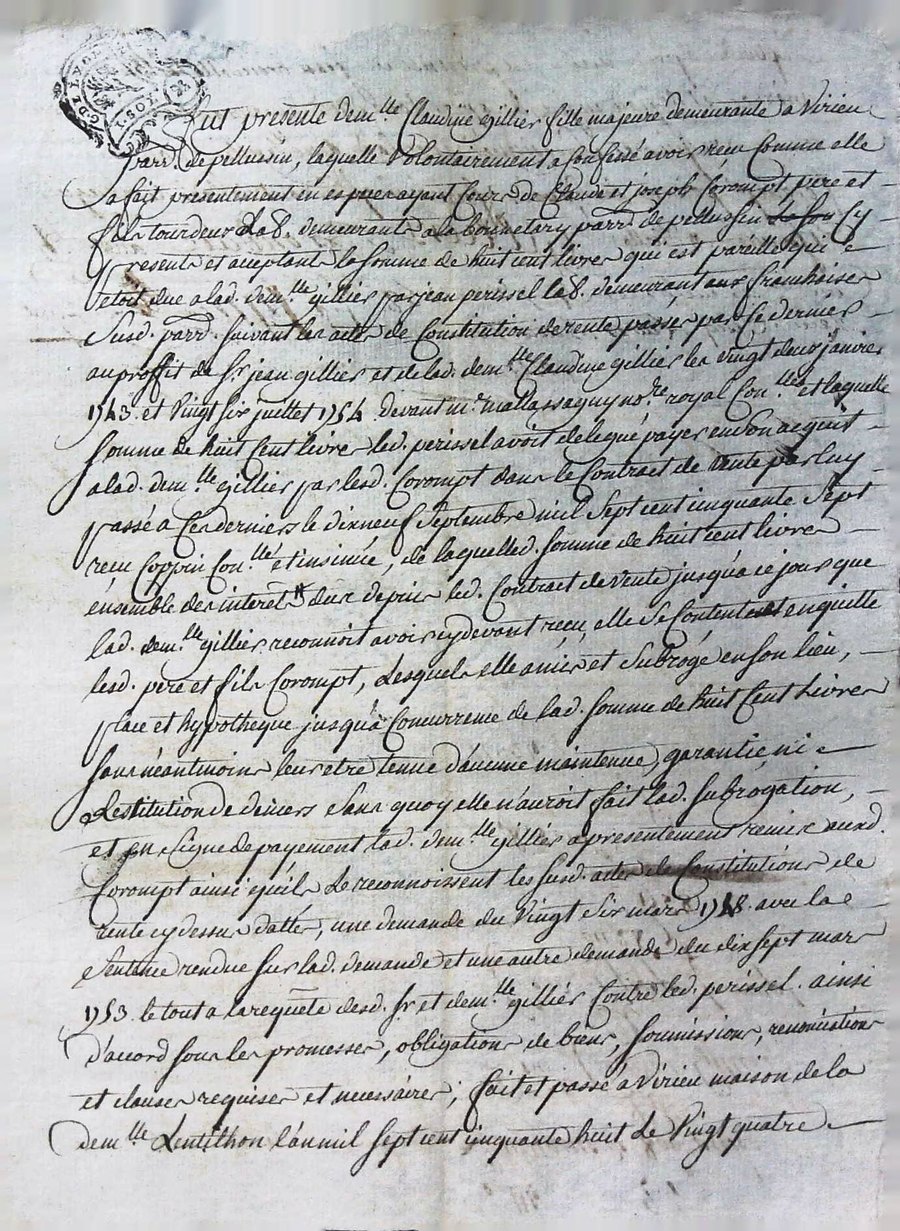 GN. DE LYON
1. SOL.
Fut presente dem.lle Claudine gillier fille majeure demeurante a Virieu
parr. de pellussin, laquelle Volontairement a confessé avoir recu Comme elle
a fait presentement en especes ayant Cours de Claude et joseph Corompt pere et
fils tourdeurs Lab. demeurants a la bonnetary parr. de pellussin Cy
presents et aceptants la somme de huit cent livres qui est pareille qui
etoit due a lad. dem.lle gillier par jean perissel lab. demeurant aux franchises
Susd. parr. suivant les actes de Constitution de rente passés par Ce dernier
au proffit de Sr. jean gillier et de lad. dem.lle Claudine gillier les vingt deux janvier
1743. et Vingt six juillet 1754. devant m.e mallassagny no.re royal Con.llés et laquelle
somme de huit Cent livres led. perissel avoit delegué payer en son acquit
a lad. dem.lle gillier par lesd. Corompt dans le Contract de Vente par luy
passé a Ces derniers le dix neuf Septembre mil Sept cent cinquante Sept
recu Coppin Con.llé et insinué, de laquelle d. somme de huit cent livres
ensemble des interets dux depuis led. Contract de vente jusqu'a ce jour que
lad. dem.lle gillier reconnoit avoir cy devant recu, elle se Contente et en quitte
lesd. pere et fils Corompt, Lesquels elle a mis et Subrogé en son lieu,
place et hypotheque jusqu'a Concurrence de lad. somme de huit Cent Livres
sans néantmoins leur etre tenue d'aucune maintenue, garantie ni
Restitution de deniers Sans quoy elle n'auroit fait lad. subrogation,
et en Signe de payement lad. dem.lle gillier a presentement remis auxd.
Corompt ainsi qu'ils Le reconnoissent les susd. actes de Constitutions de
rente cy dessus dattés, une demande du Vingt Six mars 1748. avec la
Sentence rendue sur lad. demande et une autre demande du dix sept mars
1753. le tout a la requete desd. Sr. et dem.lle gillier Contre led. perissel. ainsi
d'accord sous les promesses, obligations de biens, soumissions, renonciations
et clauses requises et necessaires; fait et passé a Virieu maison de la
dem.lle Lentilhon l'an mil sept cent cinquante huit Le Vingt quatre